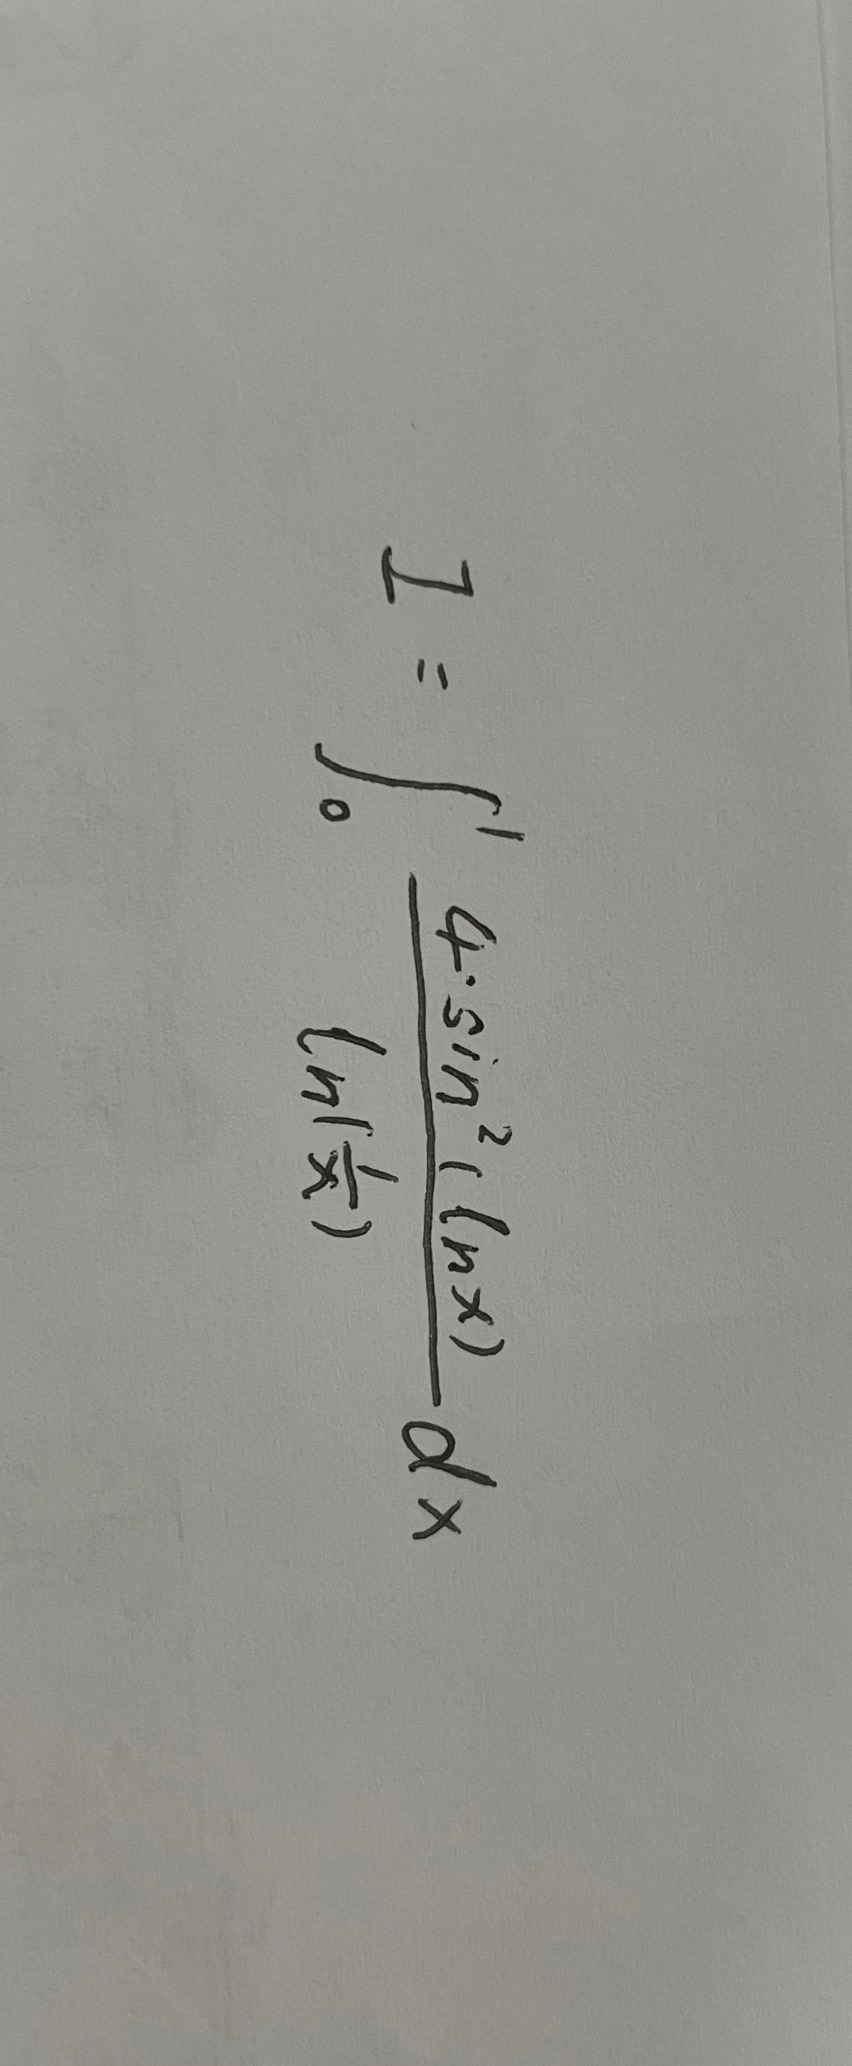 I = ∫₀¹ (4·sin²(ln x))/(ln(1/x)) dx